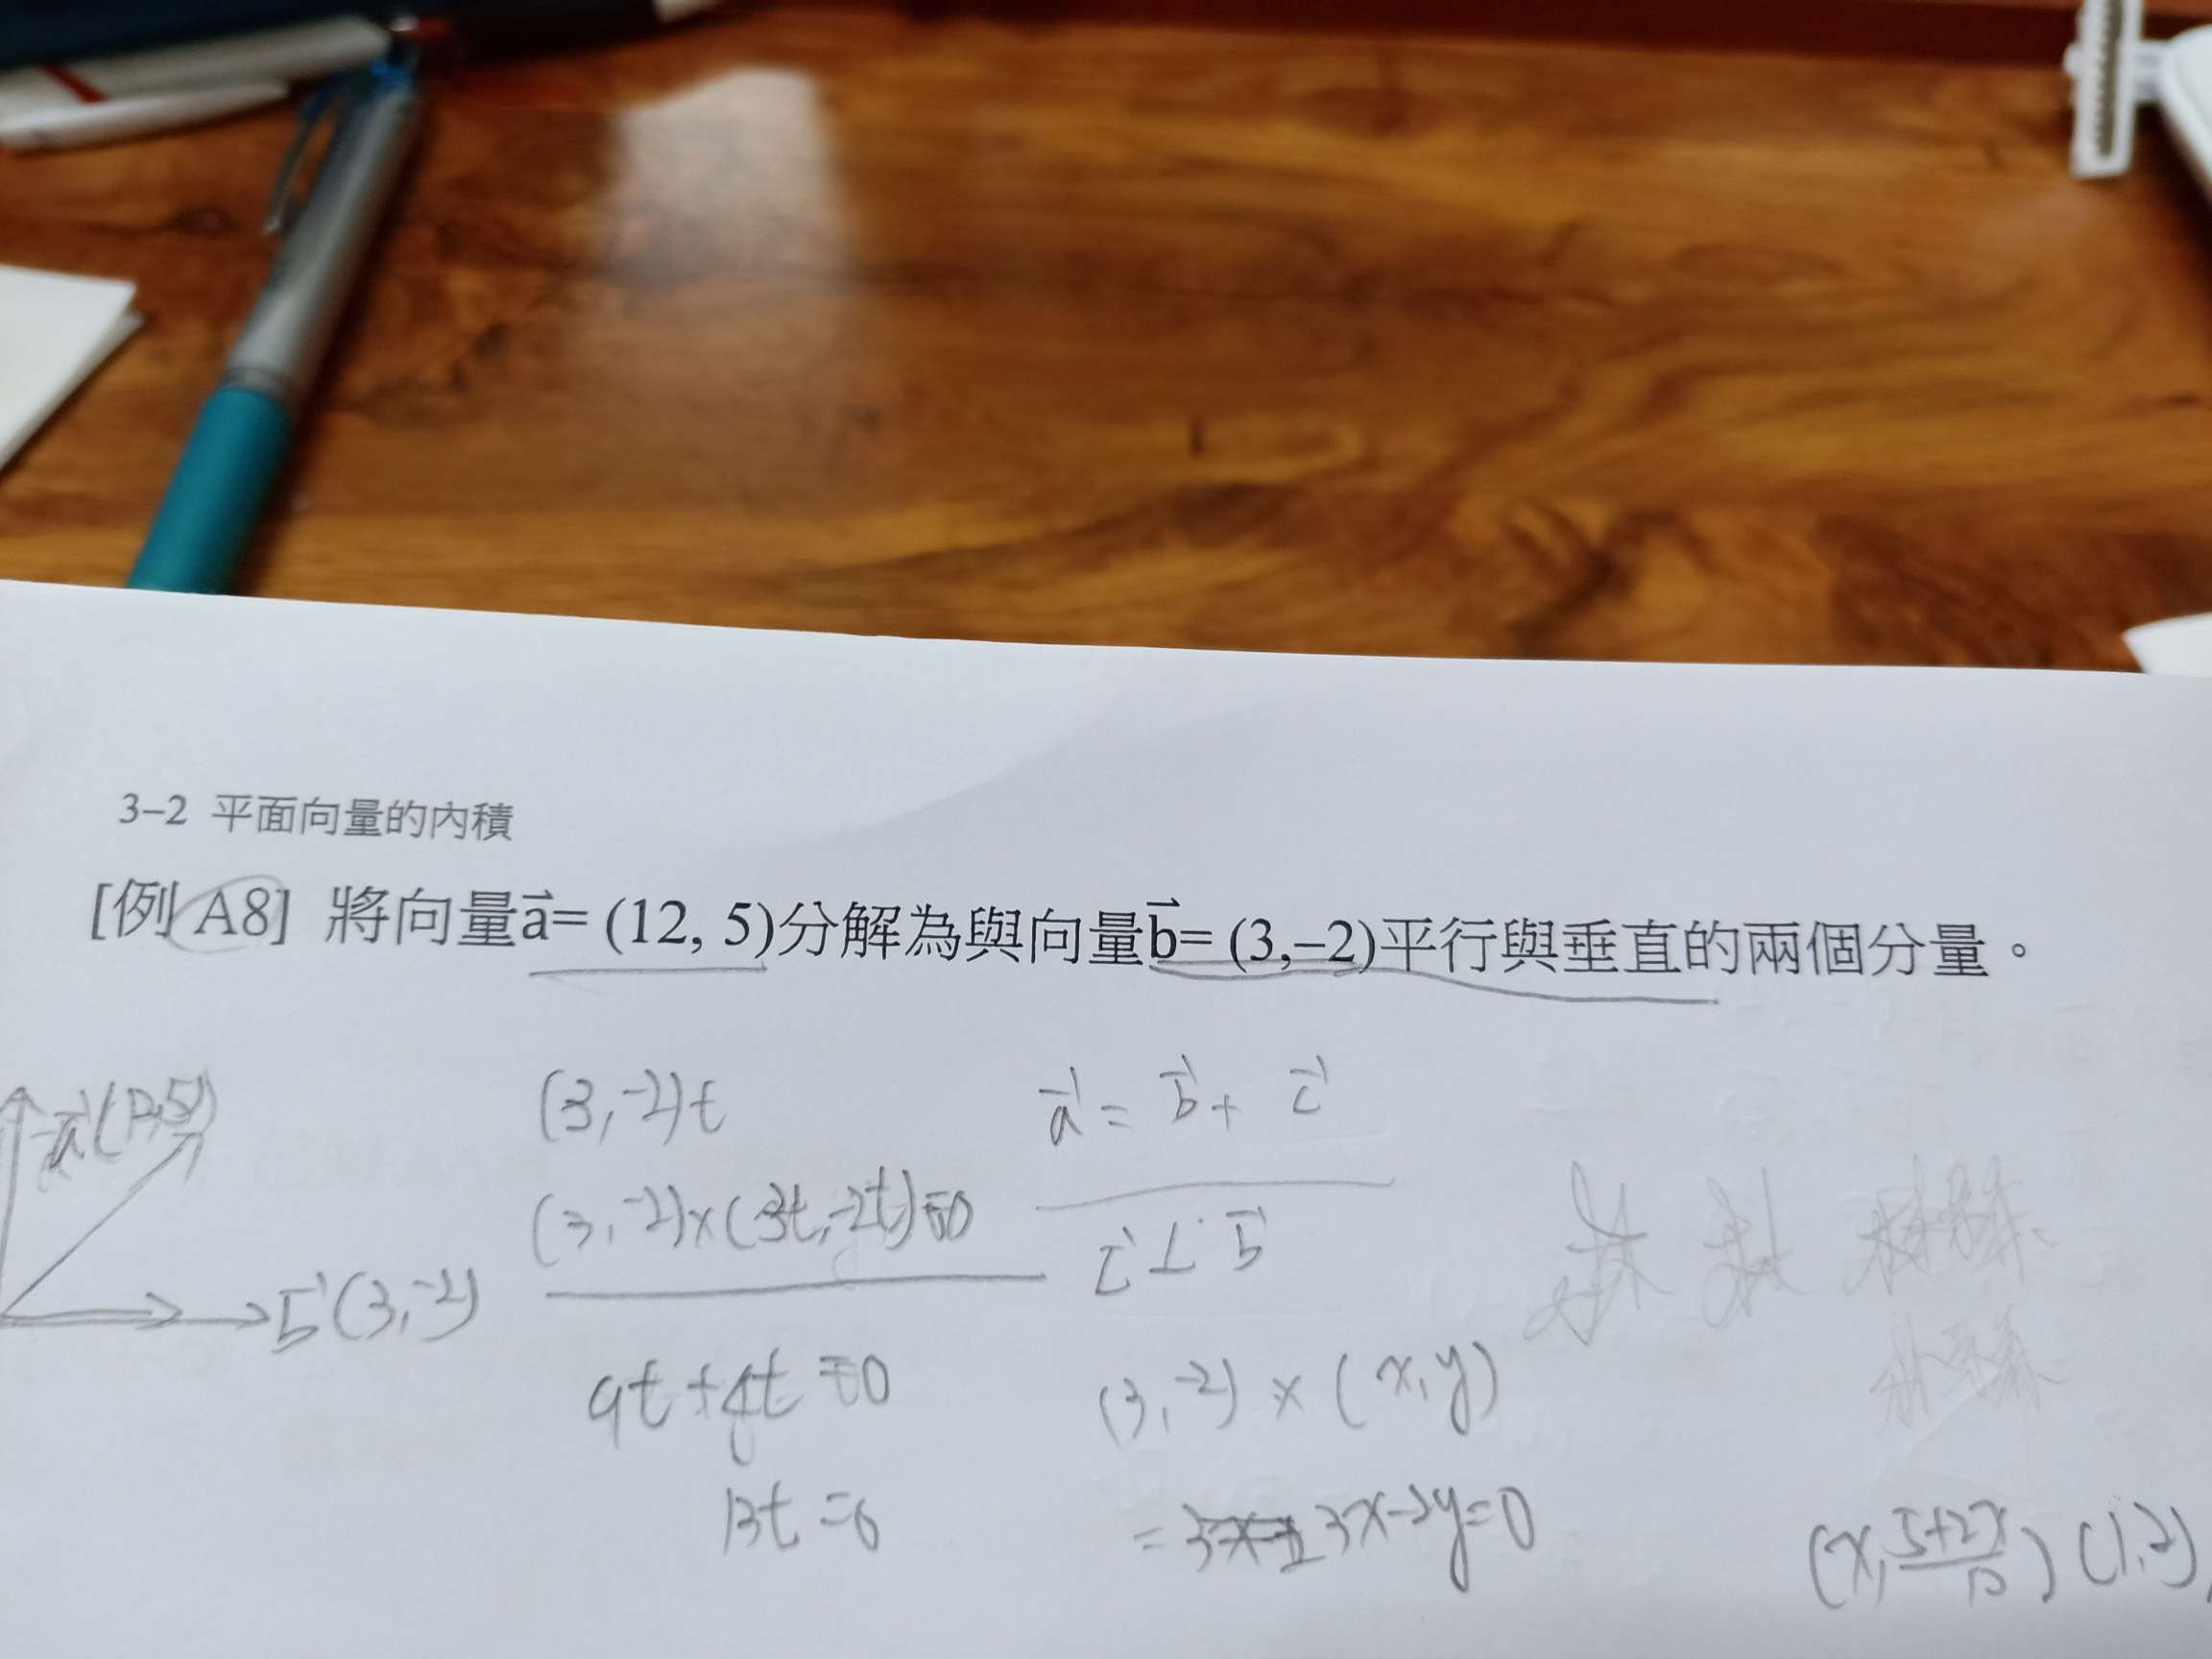 3–2 平面向量的內積
[例 A8] 將向量a⃗= (12, 5)分解為與向量b⃗= (3,–2)平行與垂直的兩個分量。
a⃗(12,5)
b⃗(3,-2)
(3,-2)t
(3,-2)×(3t,-2t)=0
9t+4t=0
13t=0
a⃗ = b⃗ + c⃗
c⃗ ⊥ b⃗
(3,-2) × (x,y)
= 3x-2y=0